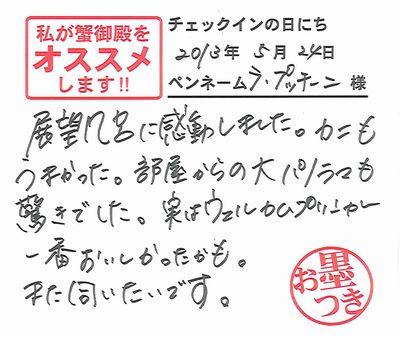 私が蟹御殿を
オススメ
します!!
チェックインの日にち
2013年 5月 24日
ペンネーム ラ・プッチーン 様
展望风呂に感動しました。カニも
うまかった。部屋からの大パノラマも
驚きでした。実はウェルカムプリンが
一番おいしかったかも。
また伺いたいです。
お墨
つき